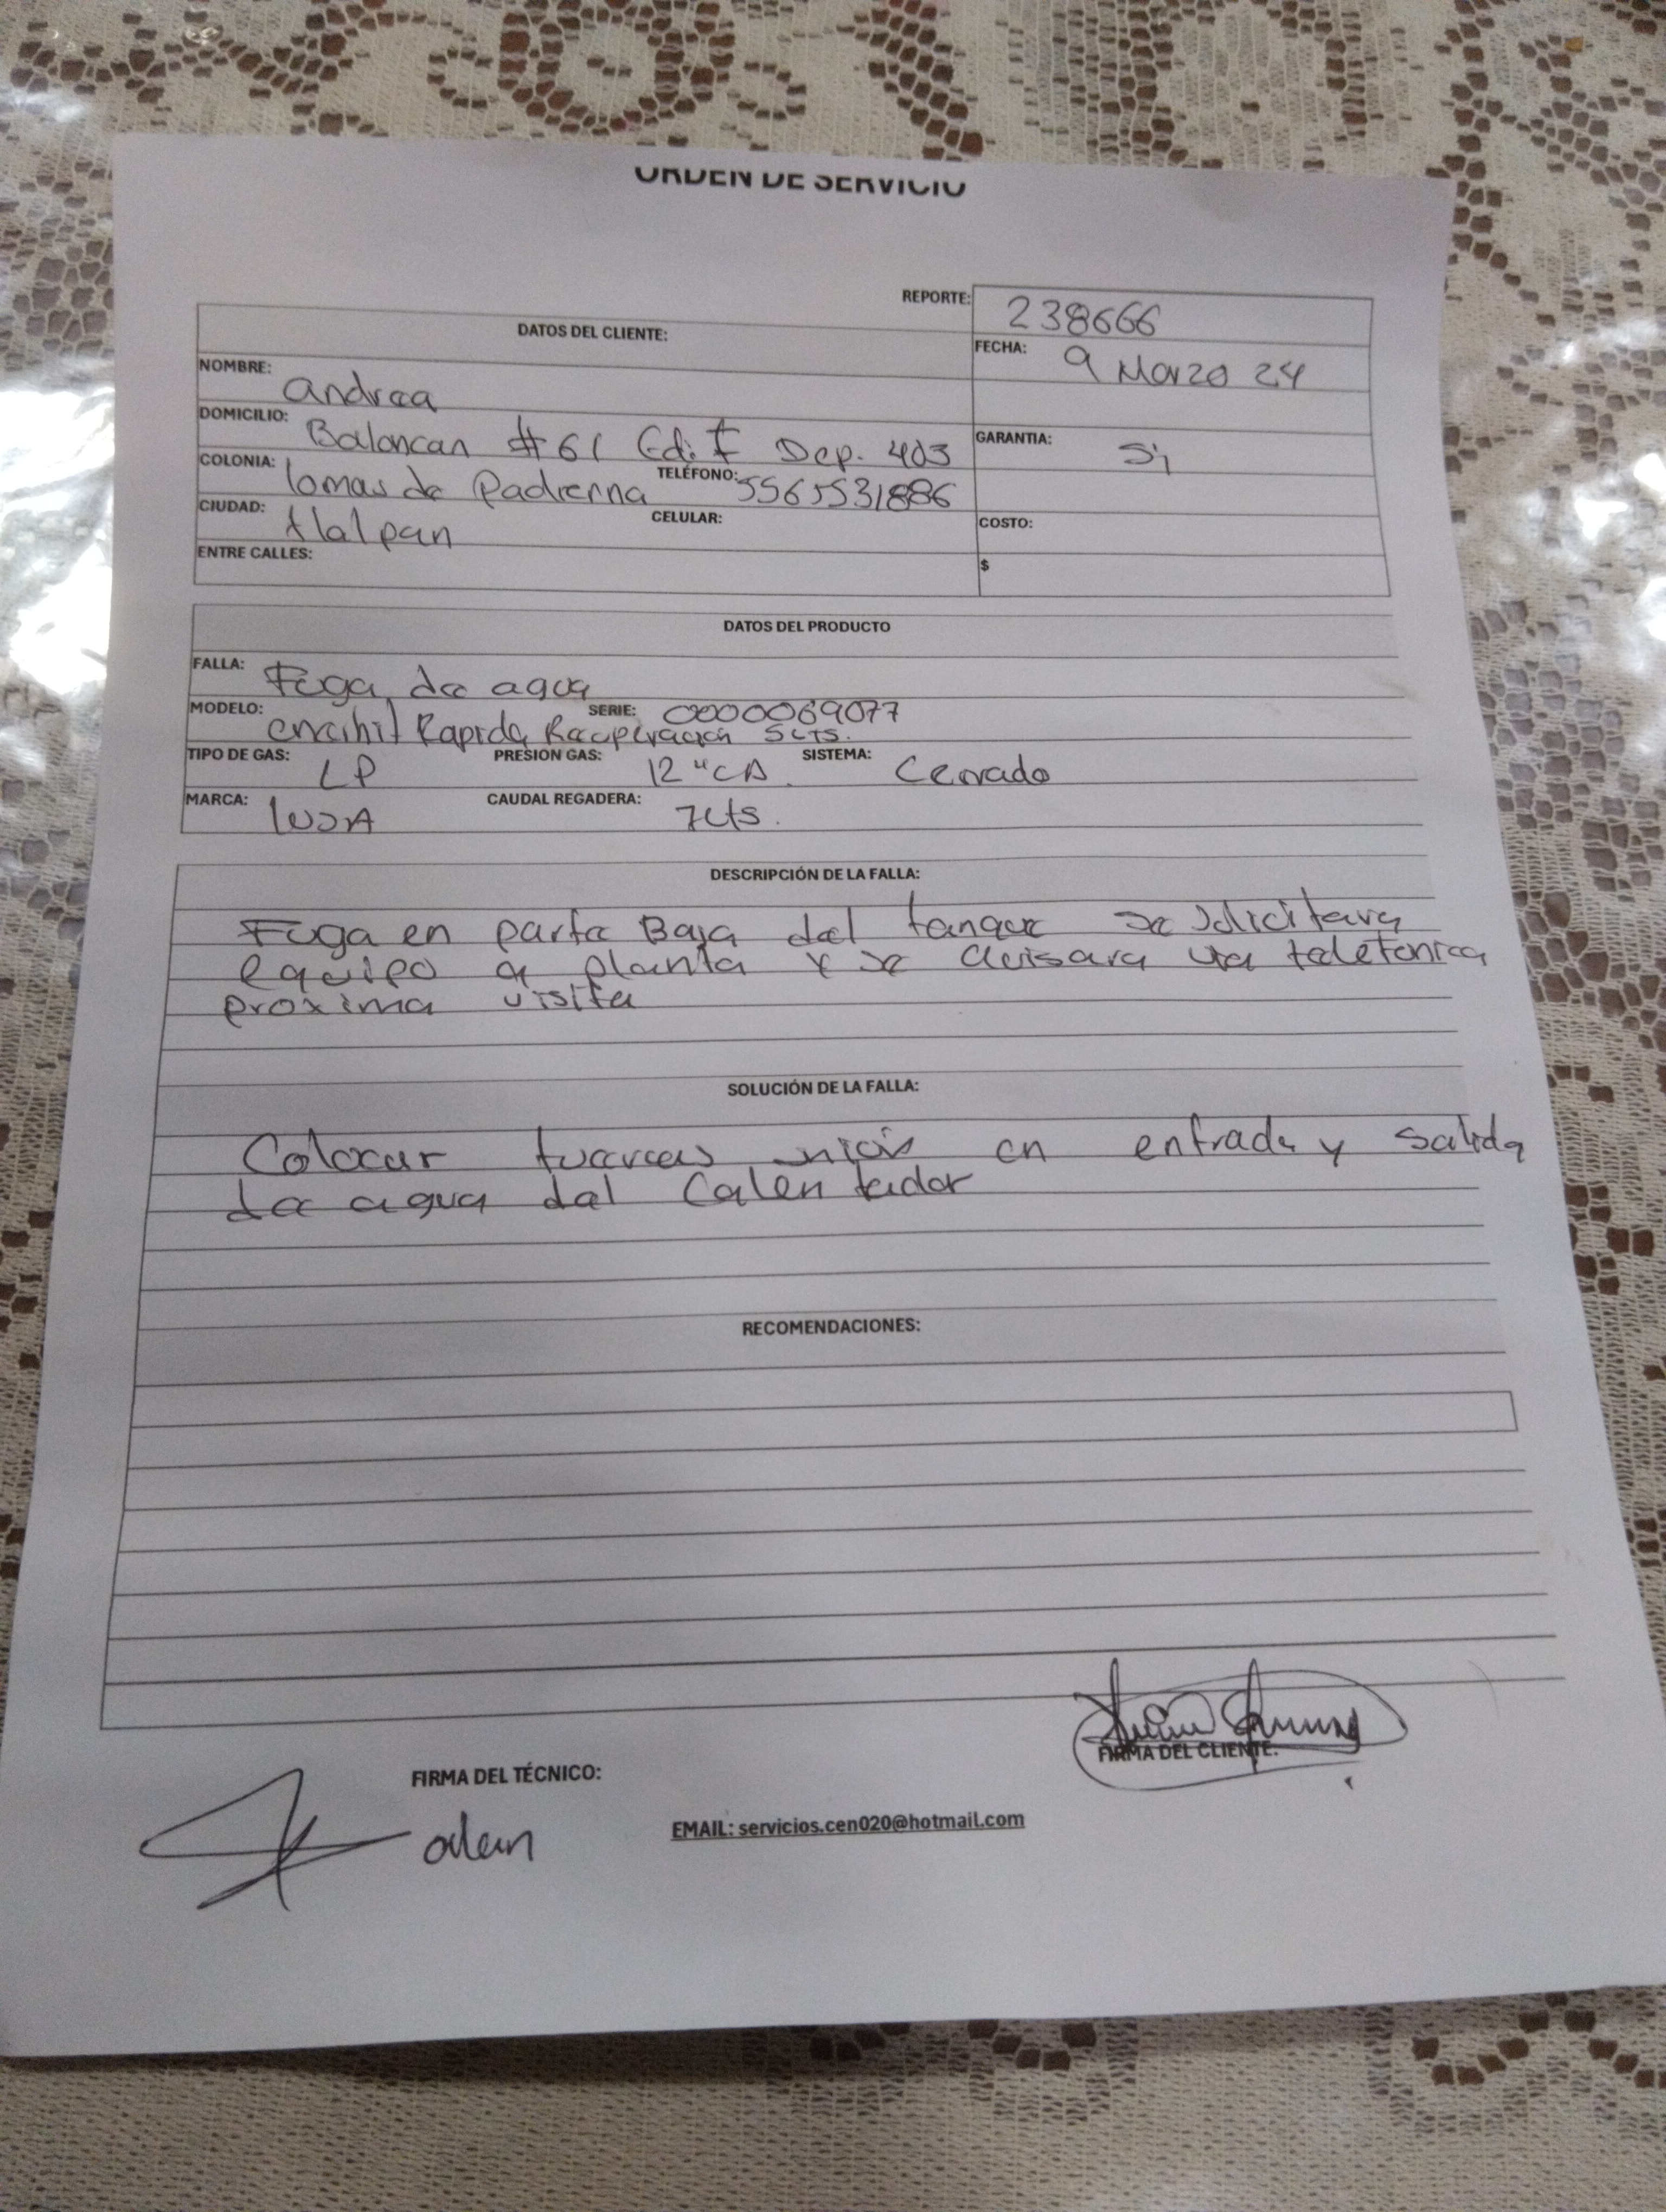 ORDEN DE SERVICIO
REPORTE: 238666
DATOS DEL CLIENTE:
FECHA: 9 Marzo 24
NOMBRE: Andrea
DOMICILIO: Balancan #61 Edi F Dep. 403
GARANTIA: Si
COLONIA: lomas de Padierna TELÉFONO: 5565531886
CIUDAD: tlalpan CELULAR:
COSTO:
ENTRE CALLES:
$
DATOS DEL PRODUCTO
FALLA: Fuga de agua
MODELO: Rapida Recuperacion 5 Lts. SERIE: 0000069077
TIPO DE GAS: LP PRESION GAS: 12 "CA. SISTEMA: Cerrado
MARCA: CAUDAL REGADERA: 7Lts.
DESCRIPCIÓN DE LA FALLA:
Fuga en parte Baja del tanque se solicitara
equipo a planta y se avisara via telefonica
proxima visita
SOLUCIÓN DE LA FALLA:
Colocar tuercas en entrada y salida
de agua del Calentador
RECOMENDACIONES:
FIRMA DEL CLIENTE:
FIRMA DEL TÉCNICO:
EMAIL: servicios.cen020@hotmail.com